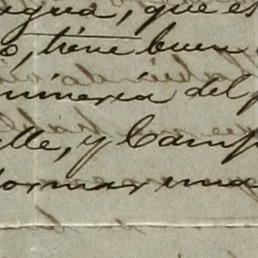 agua, que es
tiene buen
mineria del
lle, y Camp
formar una